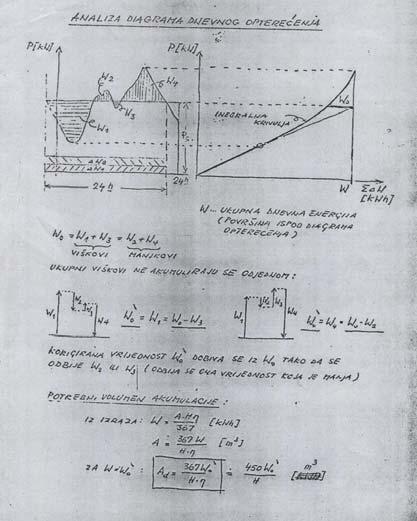 ANALIZA DIAGRAMA DNEVNOG OPTEREĆENJA
P[kW]
P[kW]
W2
W4
W3
W1
24h
24h
INEGRALNA
KRIVULJA
W
[kWh]
W... UKUPNA DNEVNA ENERGIJA
(POVRŠINA ISPOD DIAGRAMA
OPTEREĆENJA)
W0 = W1 + W3 = W2 + W4
VIŠKOVI MANJKOVI
UKUPNI VIŠKOVI NE AKUMULIRAJU SE ODJEDNOM:
W1 W2 W3 W4 W0` = W1 = W0 - W3
W1 W2 W3 W4 W0` = W4 = W0 - W2
KORIGIRANA VRIJEDNOST W0` DOBIVA SE IZ W0 TAKO DA SE
ODBIJE W2 ILI W3 (ODBIJA SE ONA VRIJEDNOST KOJA JE MANJA)
POTREBNI VOLUMEN AKUMULACIJE:
IZ IZRAZA: W = A·H·η / 367 [kWh]
A = 367 W / H·η [m³]
ZA W = W0`: Ad = 367 W0` / H·η = 450 W0` / H [m³]